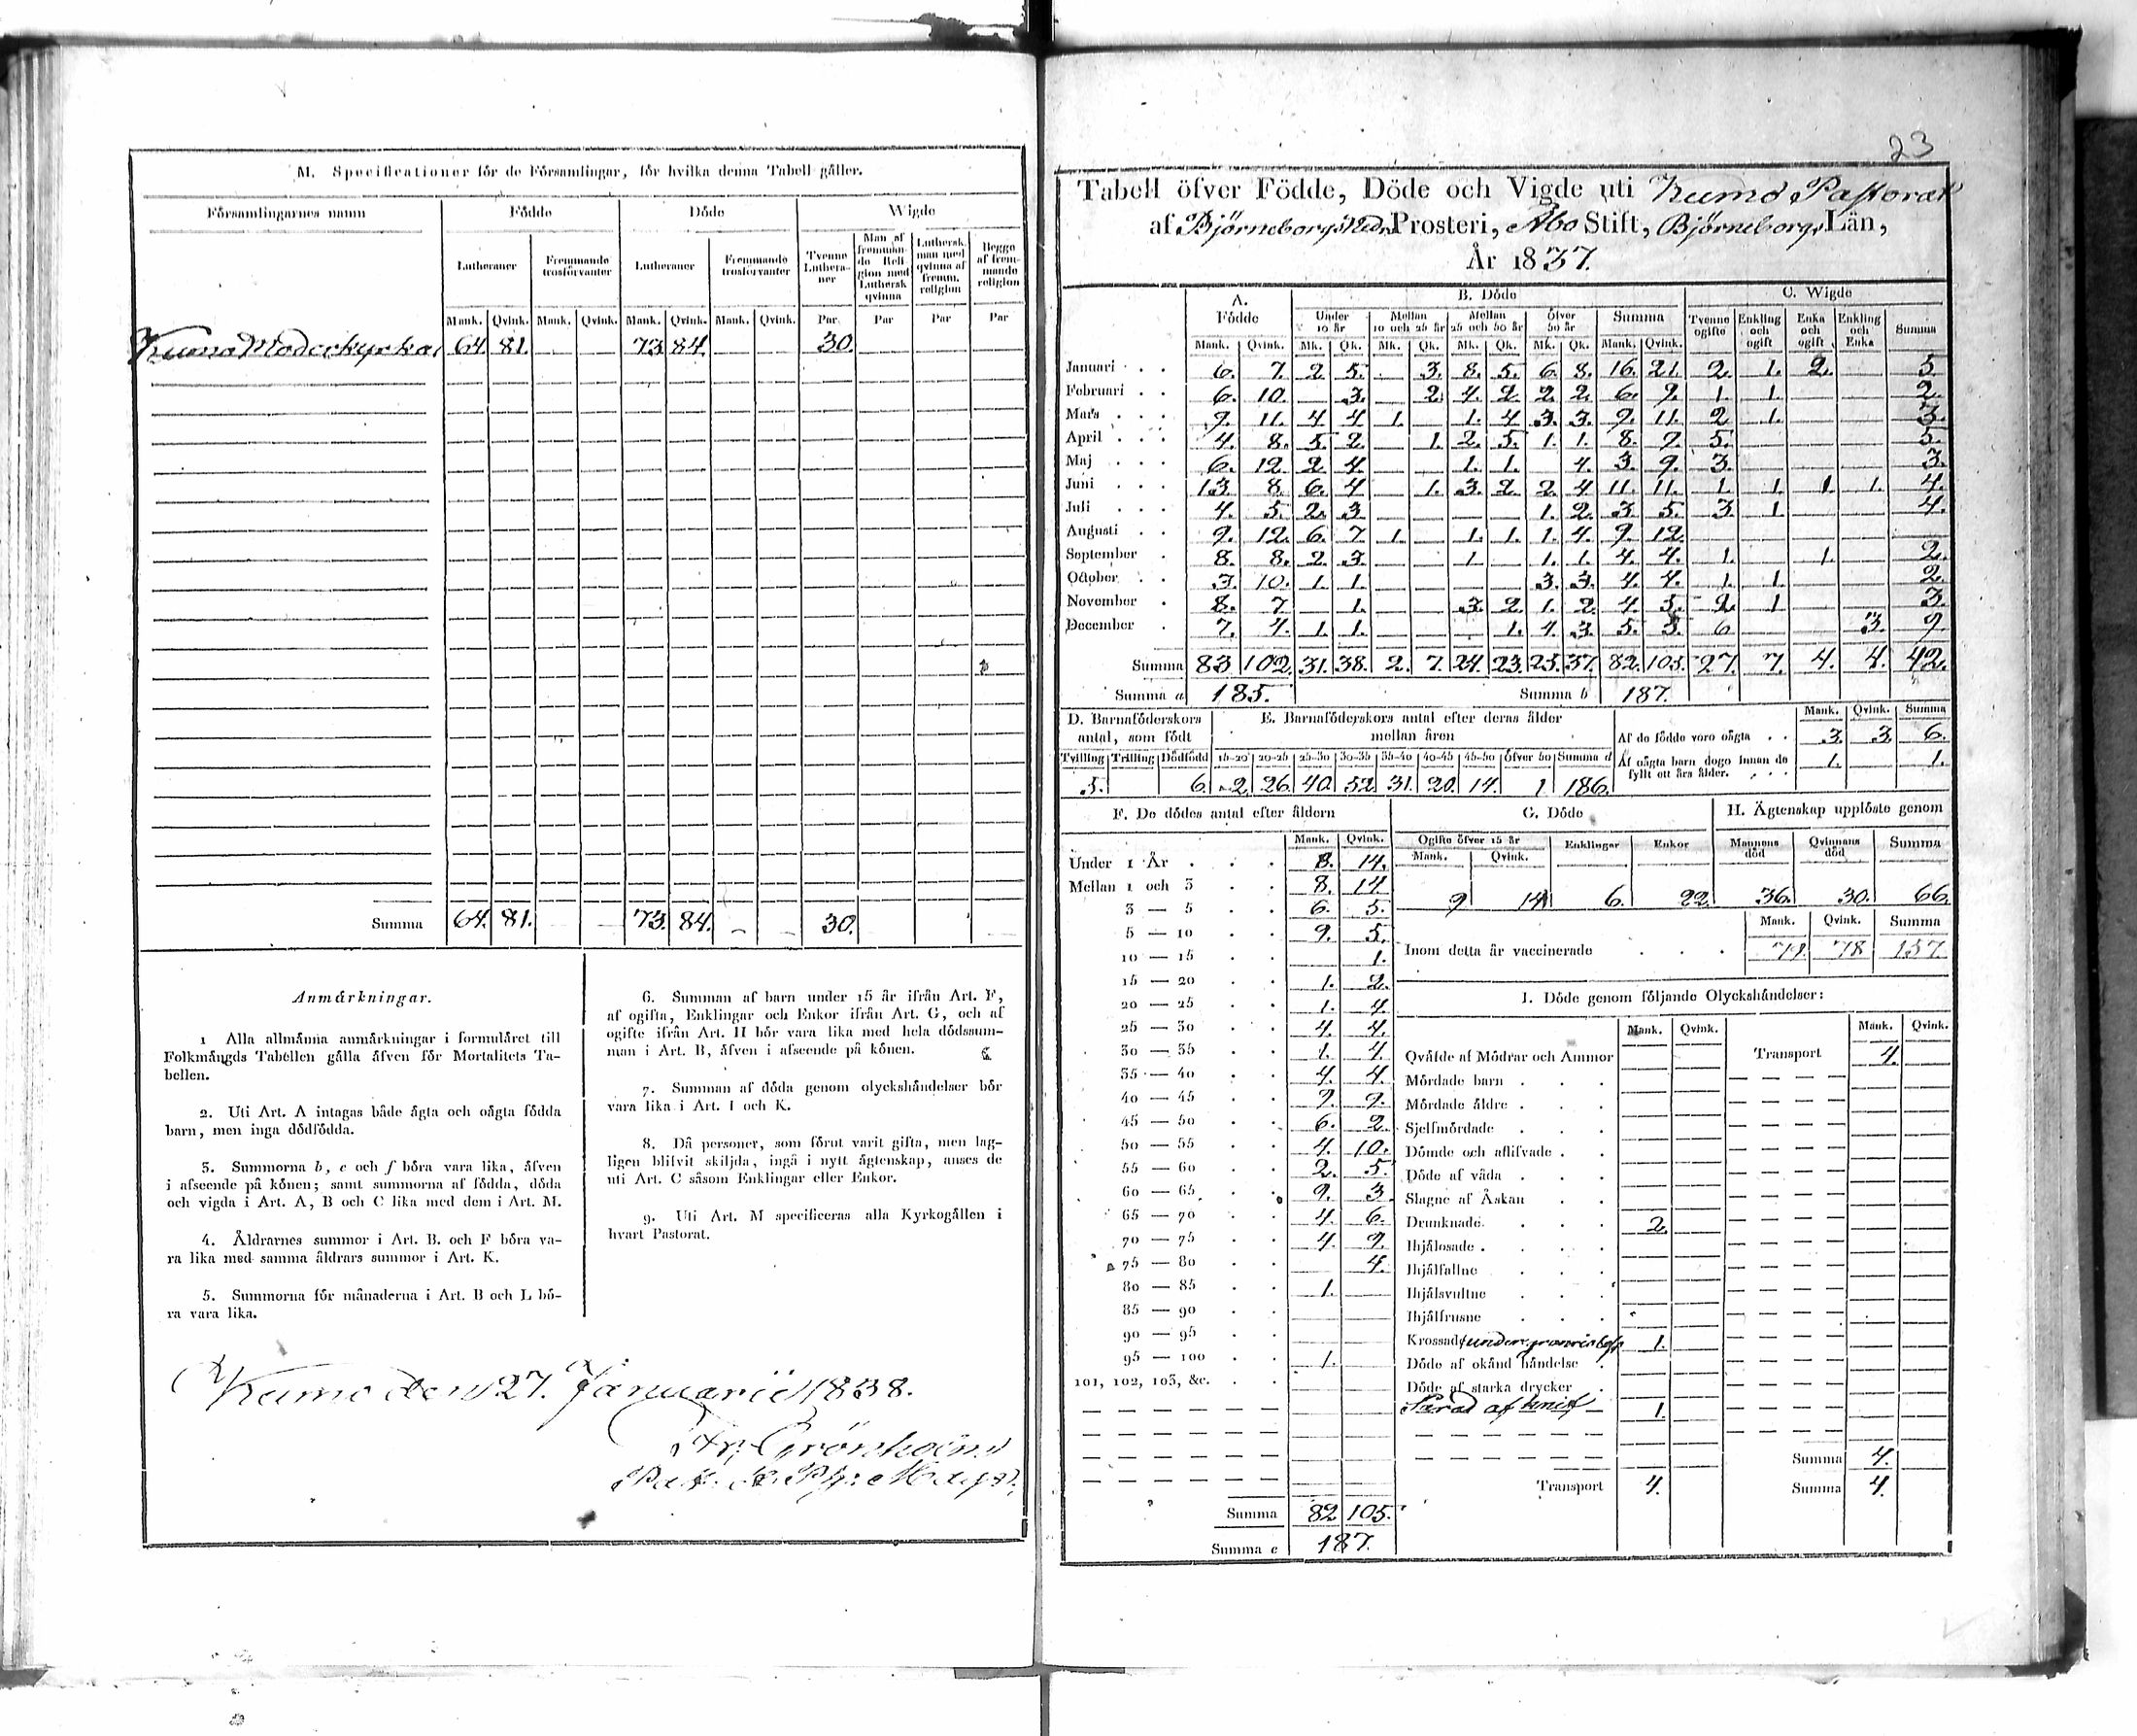 M. Specificationer för de Församlingar, för hvilka denna Tabell gäller.
Församlingarnes namn Födde Döde Wigde
Lutheraner Fremmande trosförvanter Lutheraner Fremmande trosförvanter Tvenne Lutheraner Man af fremmande Religion med Luthersk qvinna Luthersk man med qvinna af fremm. religion Begge af fremmande religion
Mank. Qvink. Mank. Qvink. Mank. Qvink. Mank. Qvink. Par Par Par Par
Kumo Moderkyrka 64. 81. 73. 84. 30.
Summa 64. 81. — — 73. 84. — — 30.
Anmärkningar.
1 Alla allmänna anmärkningar i formuläret till
Folkmängds Tabellen gälla äfven för Mortalitets Ta-
bellen.
2. Uti Art. A intagas både ägta och oägta födda
barn, men inga dödfödda.
3. Summorna b, e och f böra vara lika, äfven
i afseende på könen; samt summorna af födda, döda
och vigda i Art. A, B och C lika med dem i Art. M.
4. Åldrarnes summor i Art. B. och F böra va-
ra lika med samma åldrars summor i Art. K.
5. Summorna för månaderna i Art. B och L bö-
ra vara lika.
6. Summan af barn under 15 år ifrån Art. F,
af ogifta, Enklingar och Enkor ifrån Art. G, och af
ogifte ifrån Art. H bör vara lika med hela dödssum-
man i Art. B, äfven i afseende på könen.
7. Summan af döda genom olyckshändelser bör
vara lika i Art. I och K.
8. Då personer, som förut varit gifta, men lag-
ligen blifvit skiljda, ingå i nytt ägtenskap, anses de
uti Art. C såsom Enklingar eller Enkor.
9. Uti Art. M specificeras alla Kyrkogällen i
hvart Pastorat.
Kumo den 27. Januarii 1838.
Grönholm
23
Tabell öfver Födde, Döde och Vigde uti Kumo Pastorat
af Björneborgs Nedr Prosteri, Åbo Stift, Björneborgs Län,
År 1837.
A. Födde B. Döde C. Wigde
Under 10 år Mellan 10 och 25 år Mellan 25 och 50 år Öfver 50 år Summa Tvenne ogifte Enkling och ogift Enka och ogift Enkling och Enka Summa
Mank. Qvink. Mk. Qk. Mk. Qk. Mk. Qk. Mk. Qk. Mank. Qvink.
Januari 6. 7. 2 5. 3. 8. 5. 6. 8. 16. 21. 2. 1. 2. 5.
Februari 6. 10. — 3. 2. 4. 2 2 2. 6. 9. 1. 1. 2.
Mars 9. 11. 4 4 1. 1. 4 3. 3. 9. 11. 2 1. 3.
April 4. 8. 5. 2. 1. 2. 5. 1. 1. 8. 9. 5. 5.
Maj 6. 12. 2 4. 1. 1. 4. 3. 9. 3. 3.
Juni 13. 8. 6. 4 — 1. 3. 2 2. 4 11. 11. 1. 1. 1. 1. 4.
Juli 4. 5. 2. 3 1. 2. 3. 5. 3. 1 4.
Augusti 9. 12. 6. 7. 1. 1. 1. 1. 4. 9. 12.
September 8. 8. 2. 3. 1 1. 1. 4. 4. 1. 1. 2.
October 3. 10. 1. 1. 3. 3. 4. 4. 1. 1 2.
November 8. 7. — 1. 3. 2. 1. 2. 4. 5. 2. 1 3.
December 7. 4. 1. 1. 1. 4. 3. 5. 5. 6 3. 9.
Summa 83. 102. 31. 38. 2. 7. 24. 23. 25. 37. 82. 105. 27. 7. 4. 4. 42.
Summa a 185. Summa b 187.
D. Barnaföderskors antal, som födt
E. Barnaföderskors antal efter deras ålder mellan åren
Tvilling Trilling Dödfödd 15-20 20-25 25-30 30-35 35-40 40-45 45-50 Öfver 50 Summa d
5. 6. 2. 26. 40. 52. 31. 20. 14. 1 186.
Mank. Qvink. Summa
Af de födde voro oägta 3. 3. 6.
Af oägta barn dogo innan de fyllt ett års ålder. 1. 1.
F. De dödes antal efter åldern
Mank. Qvink.
Under 1 År 8. 14.
Mellan 1 och 3 8. 14
3 — 5 6. 5.
5 — 10 9. 5.
10 — 15 1.
15 — 20 1. 2.
20 — 25 1. 4.
25 — 30 4. 4.
30 — 35 1. 4.
35 — 40 4. 4.
40 — 45 9. 9.
45 — 50 6. 2.
50 — 55 4. 10.
55 — 60 2. 5.
60 — 65 9. 3
65 — 70 4. 6.
70 — 75 4. 9.
75 — 80 4.
80 — 85 1.
85 — 90
90 — 95
95 — 100 1.
101, 102, 103, &c.
Summa 82. 105.
Summa e 187.
G. Döde
Ogifte öfver 15 år Enklingar Enkor
Mank. Qvink.
9 14 6. 22.
H. Ägtenskap upplöste genom
Mannens död Qvinnans död Summa
36. 30. 66.
Mank. Qvink. Summa
Inom detta år vaccinerade 79. 78 157.
I. Döde genom följande Olyckshändelser:
Mank. Qvink. Mank. Qvink.
Qväfde af Mödrar och Ammor Transport 4.
Mördade barn
Mördade äldre
Sjelfmördade
Dömde och aflifvade
Döde af våda
Slagne af Åskan
Drunknade 2.
Ihjälosade
Ihjälfallne
Ihjälsvultne
Ihjälfrusne
Krossade under 1.
Döde af okänd händelse
Döde af starka drycker
Sårad af knif 1.
Summa 4.
Transport 4. Summa 4.